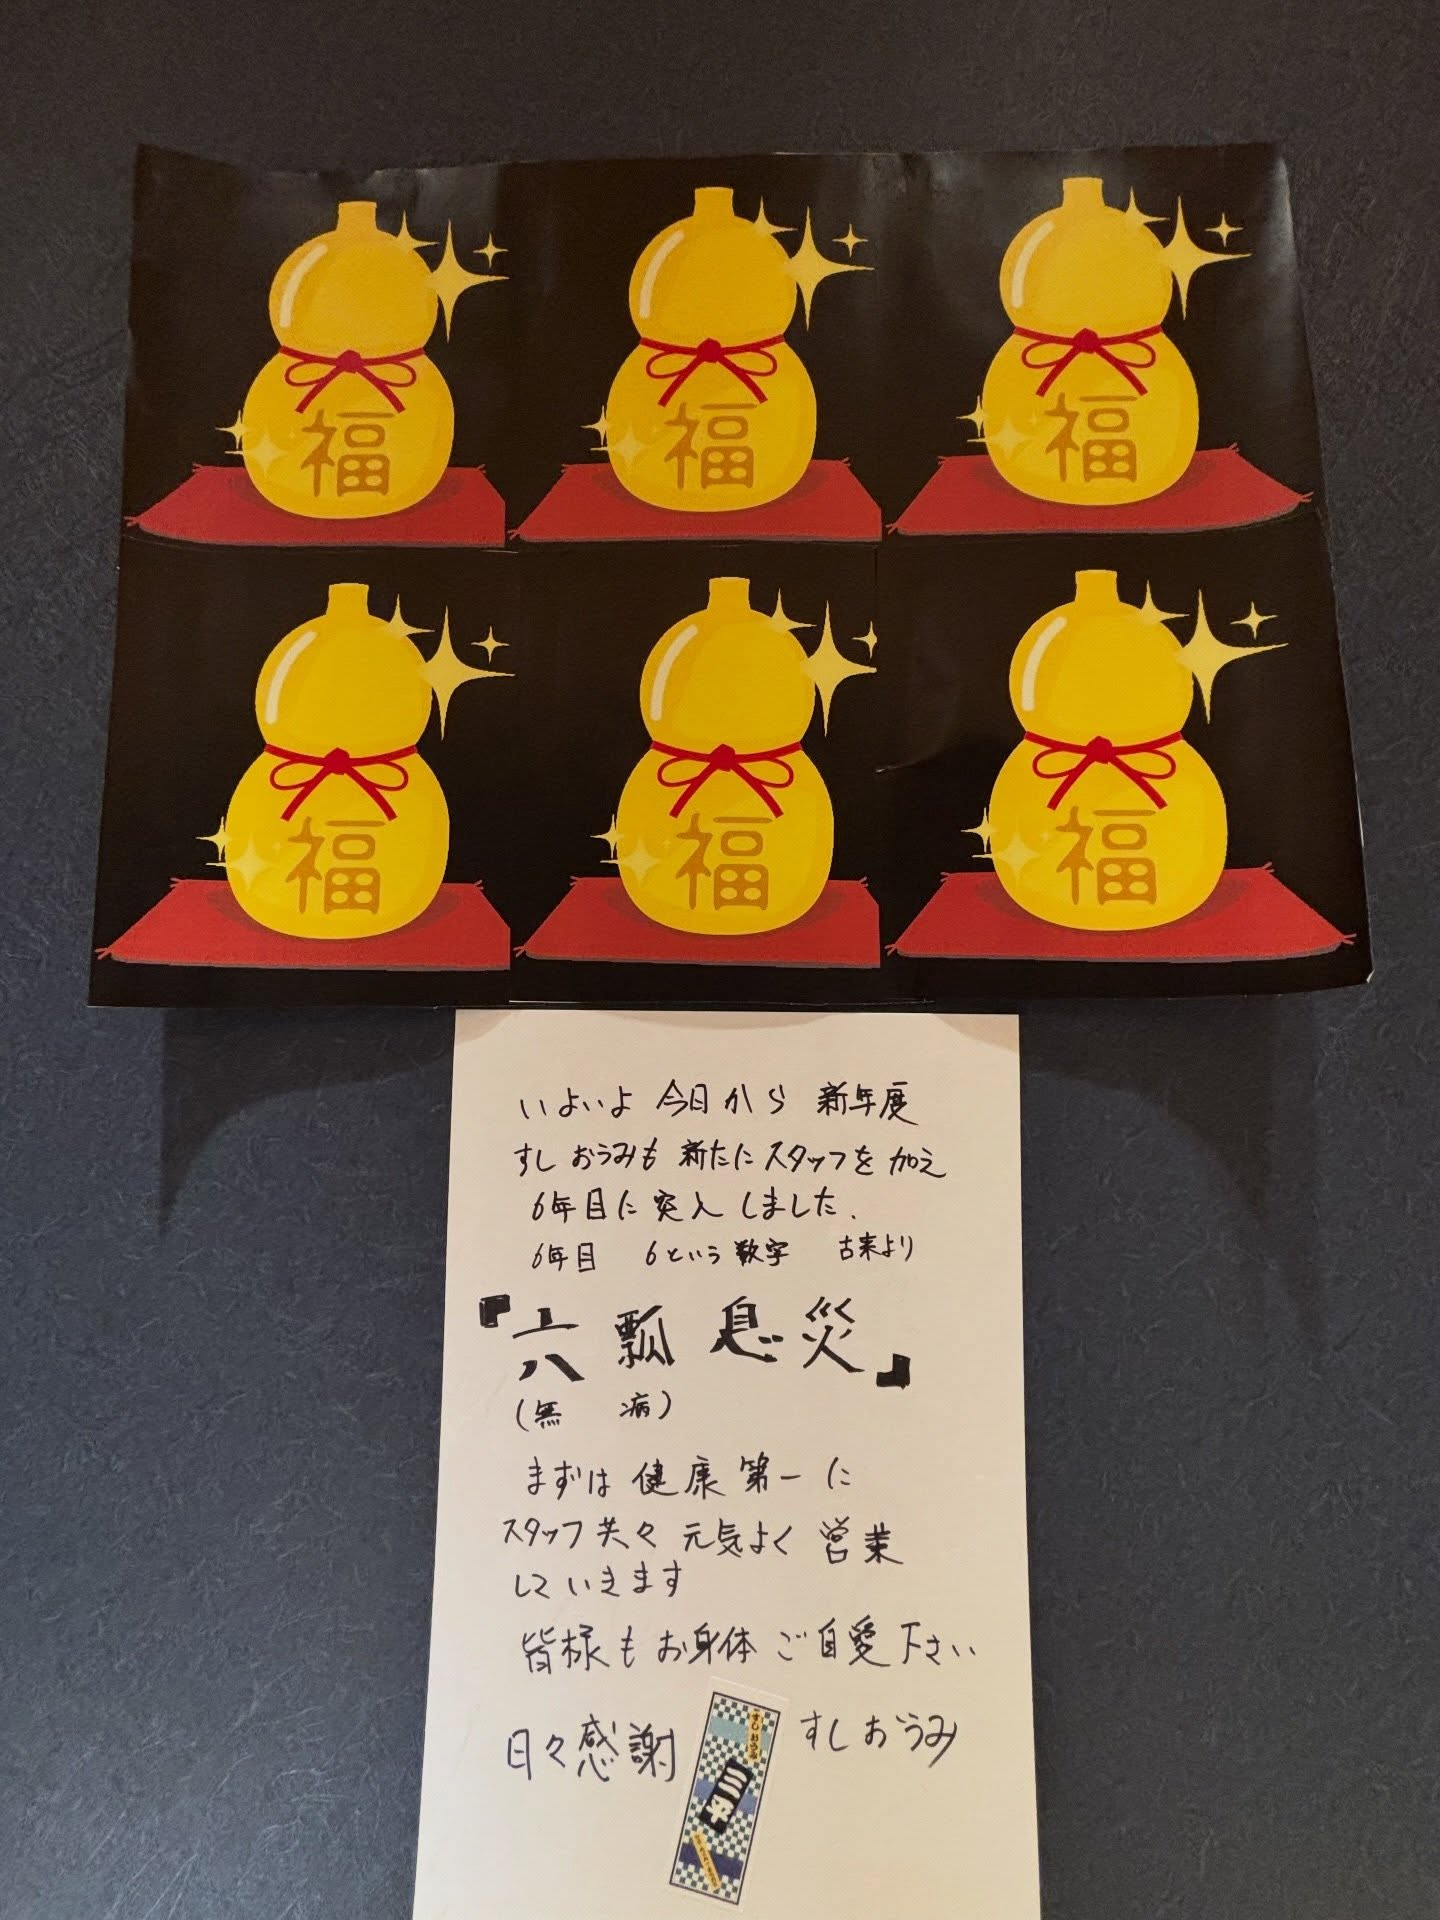 福
福
福
福
福
福
いよいよ 今日から 新年度
すし おうみも 新たにスタッフを 加え
6年目に 突入しました.
6年目 6という数字 古来より
『六瓢息災』
(無 病)
まずは 健康 第一に
スタッフ共々 元気よく 営業
していきます
皆様も お身体 ご自愛下さい
日々感謝 すしおうみ
すしおうみ